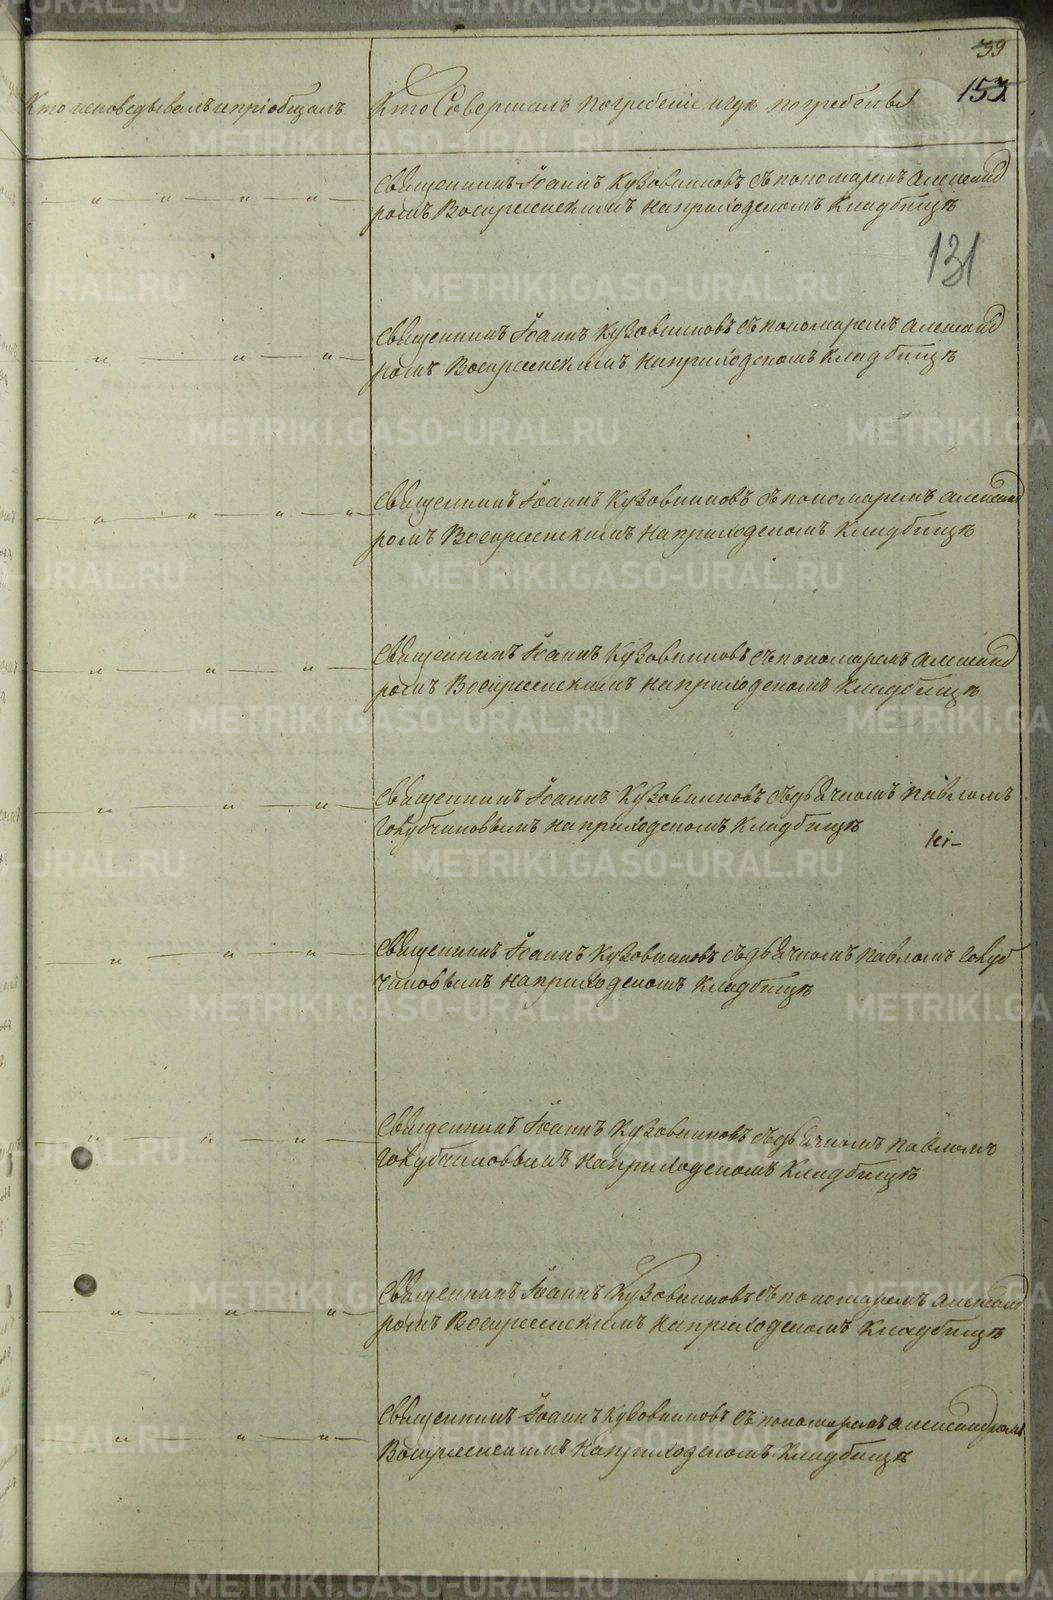 39
153
Кто исповедывалъ и пріобщалъ
Кто Совершалъ погребеніе и гдѣ погребены
Священникъ Іоаннъ Кузовниковъ съ пономаремъ Александ
ромъ Воскресенскимъ на приходскомъ Кладбищѣ
131
Священникъ Іоаннъ Кузовниковъ съ пономаремъ Александ
ромъ Воскресенскимъ на приходскомъ Кладбищѣ
Священникъ Іоаннъ Кузовниковъ съ пономаремъ Александ
ромъ Воскресенскимъ на приходскомъ Кладбищѣ
Священникъ Іоаннъ Кузовниковъ съ пономаремъ Александ
ромъ Воскресенскимъ на приходскомъ Кладбищѣ
Священникъ Іоаннъ Кузовниковъ съ дьячкомъ Павломъ
Голубчиковымъ на приходскомъ Кладбищѣ
Священникъ Іоаннъ Кузовниковъ съ дьячкомъ Павломъ Голуб
чиковымъ на приходскомъ Кладбищѣ
Священникъ Іоаннъ Кузовниковъ съ дьячкомъ Павломъ
Голубчиковымъ на приходскомъ Кладбищѣ
Священникъ Іоаннъ Кузовниковъ съ пономаремъ Александ
ромъ Воскресенскимъ на приходскомъ Кладбищѣ
Священникъ Іоаннъ Кузовниковъ съ пономаремъ Александромъ
Воскресенскимъ на приходскомъ Кладбищѣ